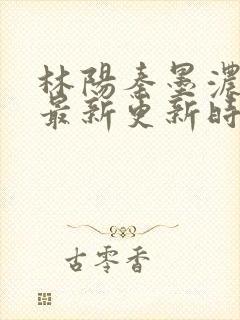 林陽秦墨濃
最新更新時
古零香